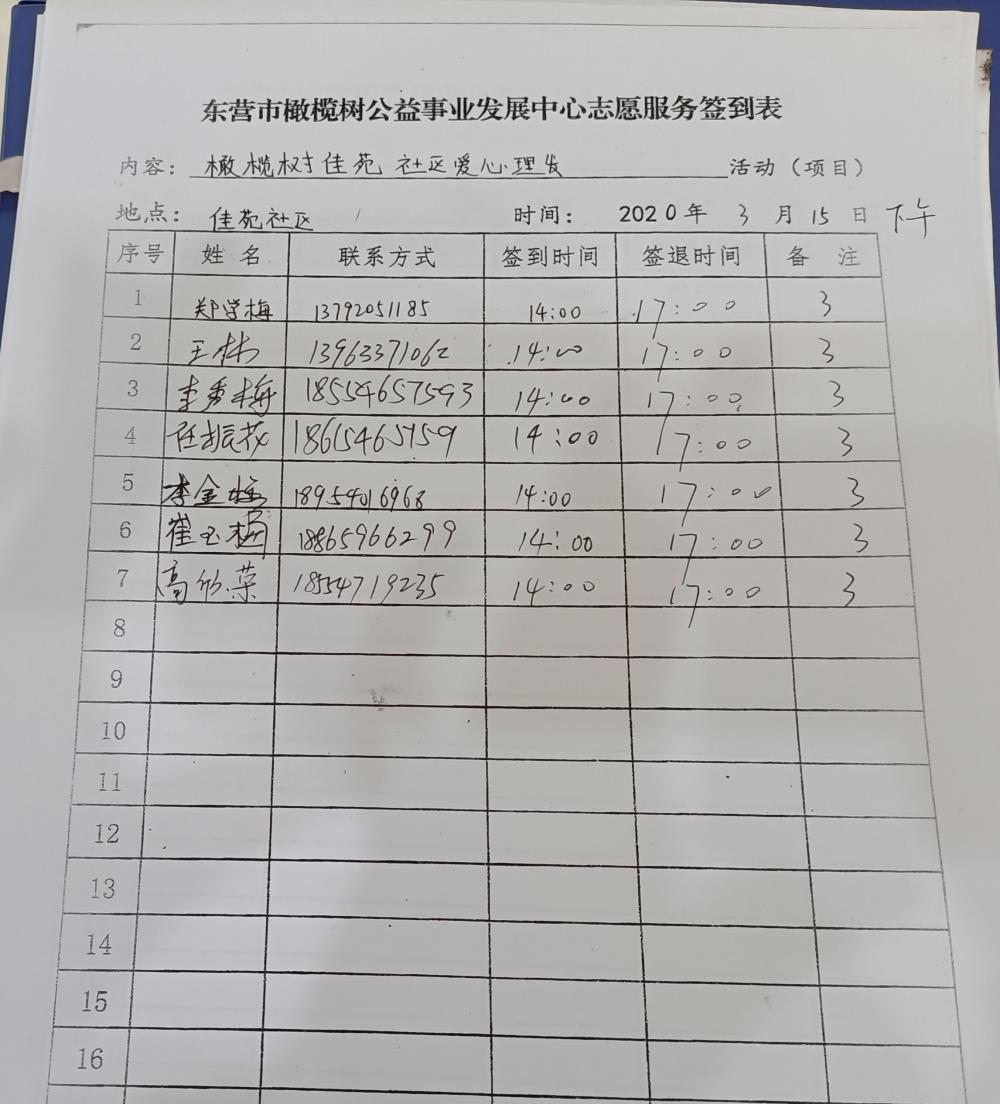 东营市橄榄树公益事业发展中心志愿服务签到表
内容: 橄榄树佳苑社区爱心理发 活动（项目）
地点: 佳苑社区 时间: 2020年 3月 15日 下午
序号 姓名 联系方式 签到时间 签退时间 备注
1 郑学梅 13792051185 14:00 17:00 3
2 王林 13963371062 14:00 17:00 3
3 李秀梅 18554657593 14:00 17:00 3
4 任振花 18615465759 14:00 17:00 3
5 李金 18954016968 14:00 17:00 3
6 崔玉梅 18865966299 14:00 17:00 3
7 高欣荣 18554719235 14:00 17:00 3
8
9
10
11
12
13
14
15
16